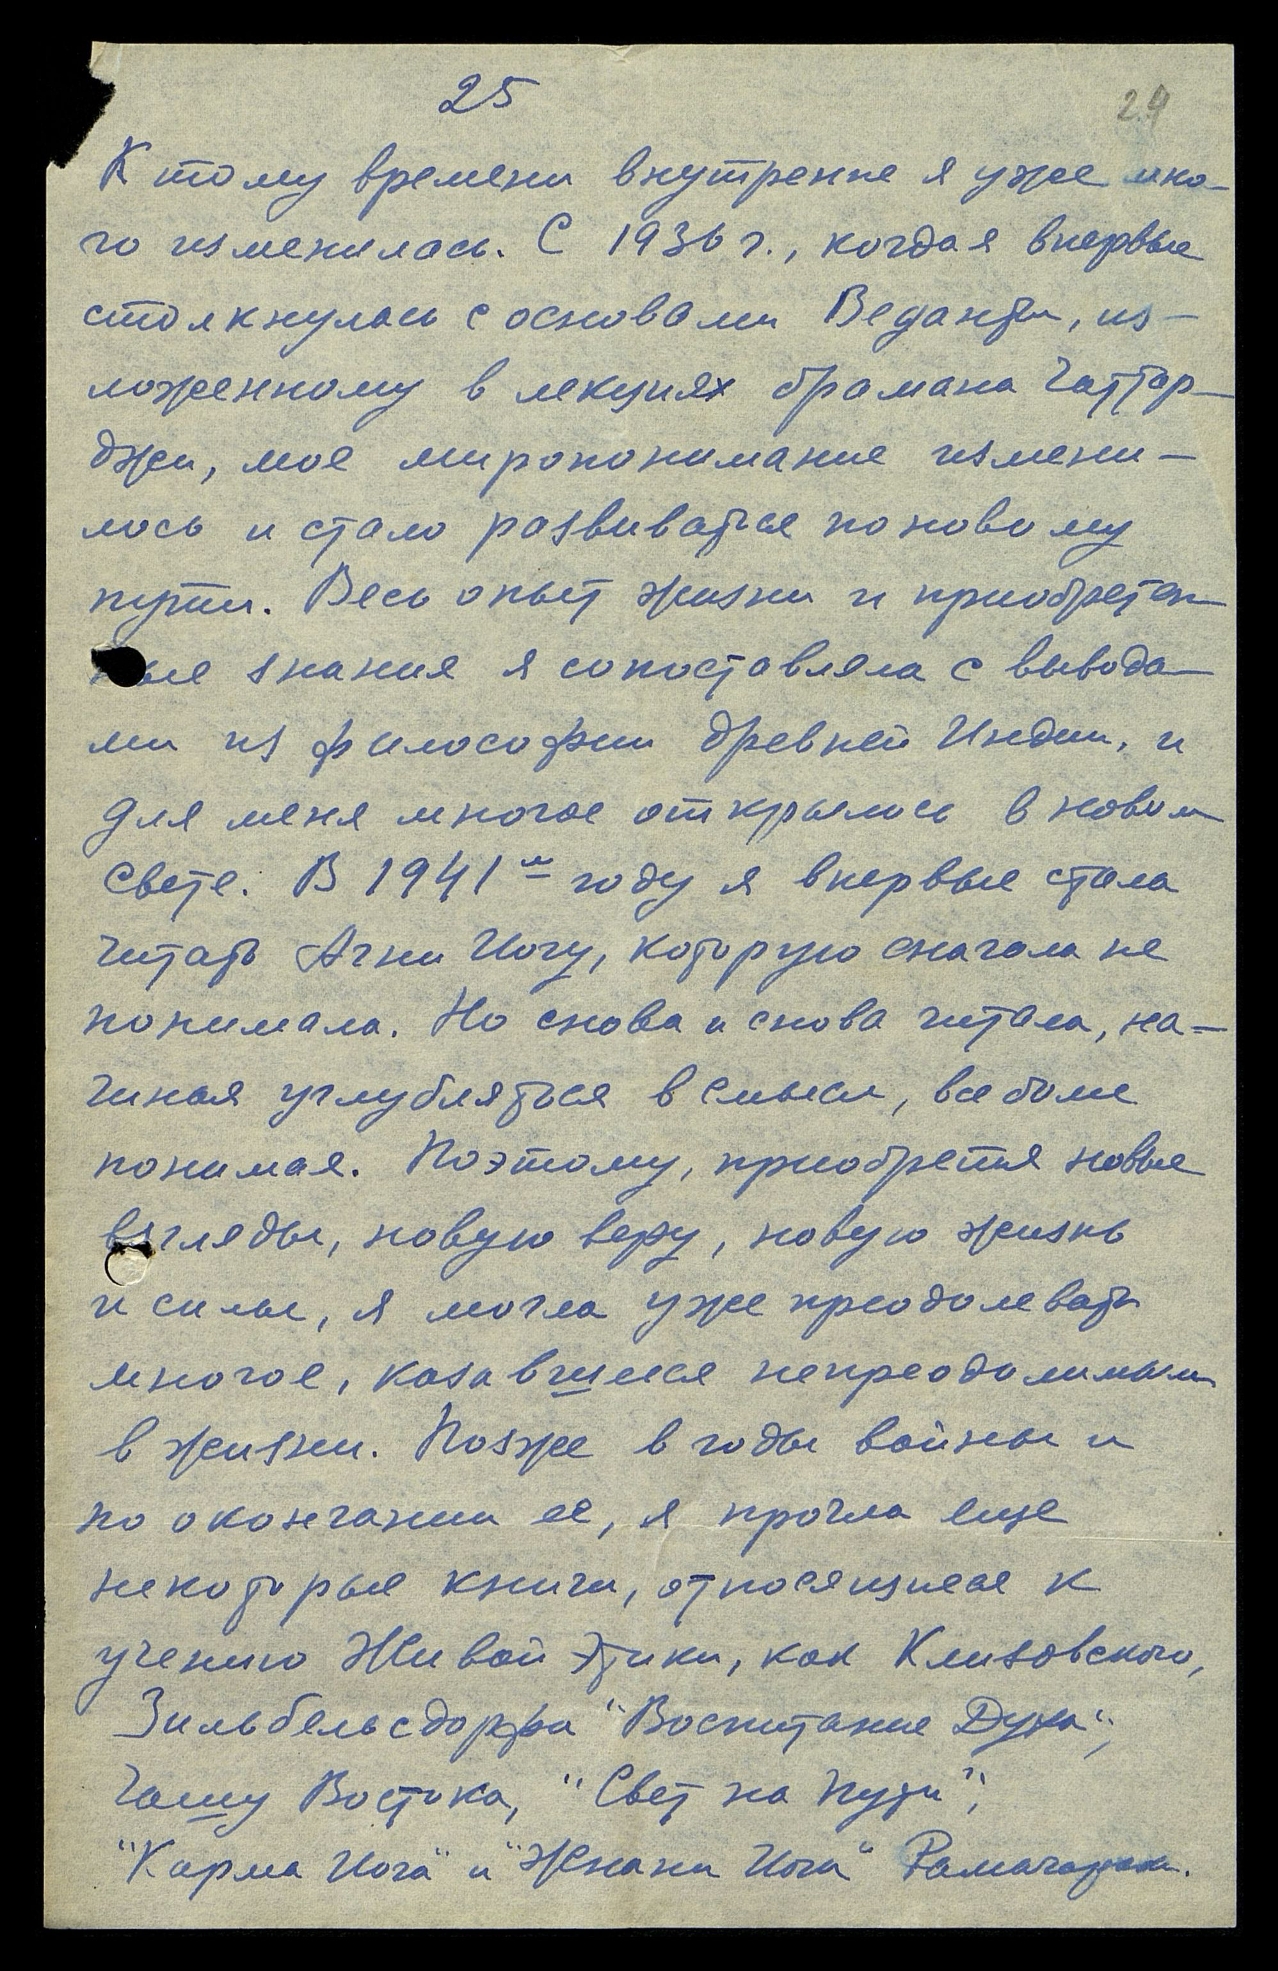 25
24
К тому времени внутренне я уже мно-
го изменилась. С 1936 г., когда я впервые
столкнулась с основами Веданты, из-
ложенному в лекциях брамана Чаттар-
джи, мое миропонимание измени-
лось и стало развиваться по новому
пути. Весь опыт жизни и приобретен-
ные знания я сопоставляла с вывода-
ми из философии древней Индии, и
для меня многое открылось в новом
свете. В 1941м году я впервые стала
читать Агни Йогу, которую сначала не
понимала. Но снова и снова читала, на-
чиная углубляться в смысл, все более
понимая. Поэтому, приобретя новые
взгляды, новую веру, новую жизнь
и силы, я могла уже преодолевать
многое, казавшееся непреодолимым
в жизни. Позже в годы войны и
по окончании ее, я прочла еще
некоторые книги, относящиеся к
учению Живой Этики, как Клизовского,
Зильберсдорфа "Воспитание Духа",
Чашу Востока, "Свет на Пути",
"Карма Йога" и "Жнани Йога" Рамачараки.